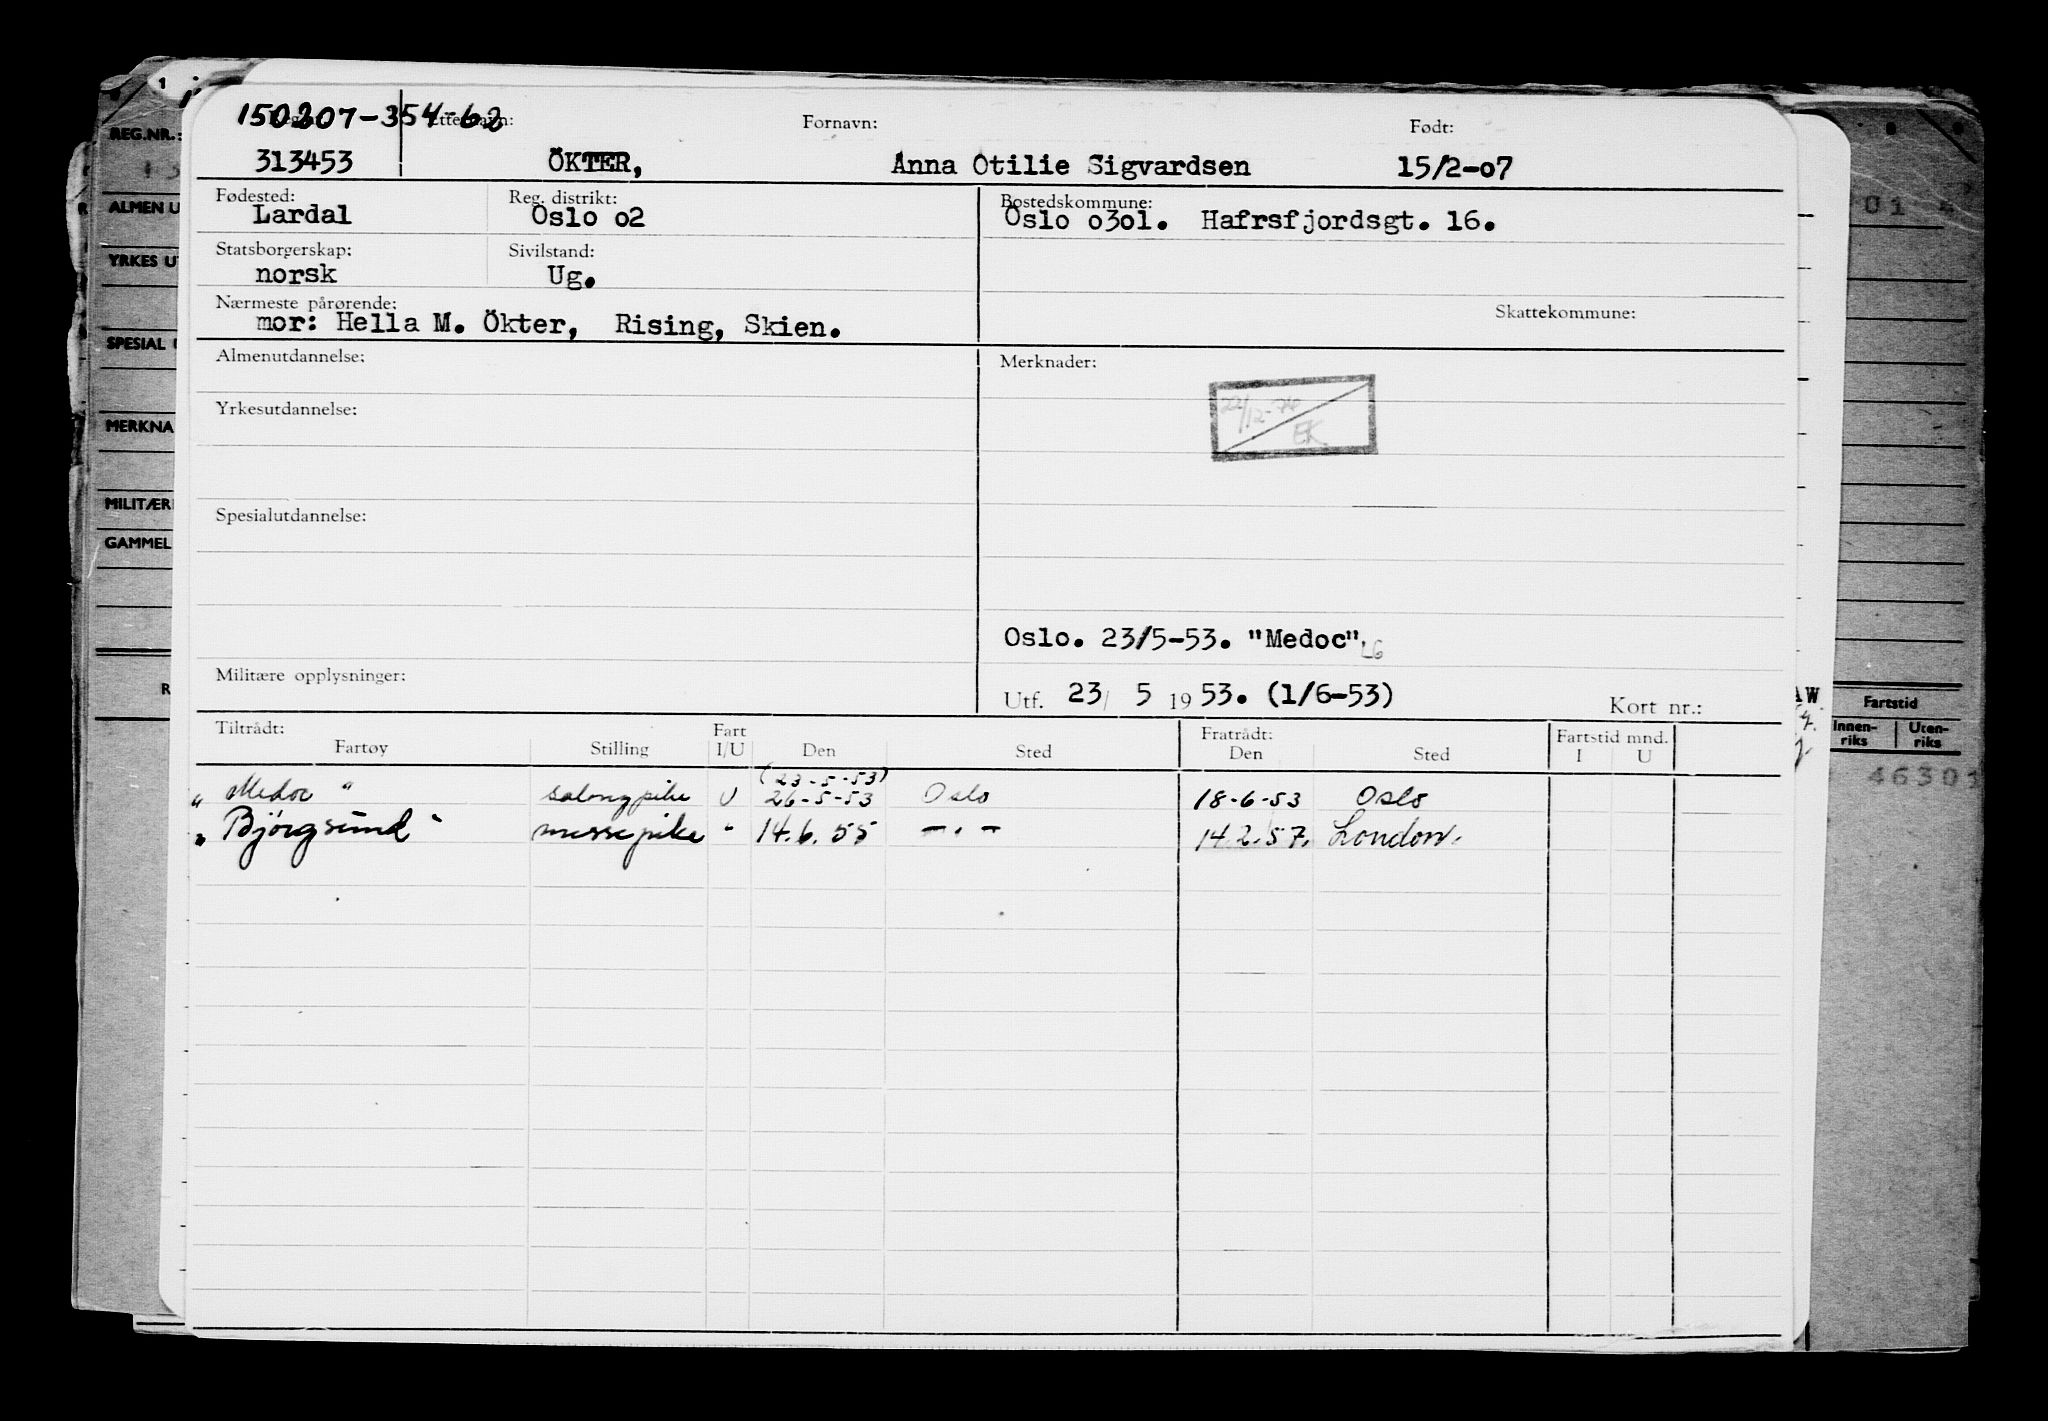 150207-354-62
Reg.nr.: Etternavn: Fornavn: Født:
313453 ÖKTER, Anna Otilie Sigvardsen 15/2-07
Fødested: Reg. distrikt: Bostedskommune:
Lardal Oslo o2 Oslo o3ol. Hafrsfjordsgt. 16.
Statsborgerskap: Sivilstand:
norsk Ug.
Nærmeste pårørende: Skattekommune:
mor: Hella M. Ökter, Rising, Skien.
Almenutdannelse: Merknader:
22/12-76
EK
Yrkesutdannelse:
Spesialutdannelse:
Oslo. 23/5-53. "Medoc" LG
Militære opplysninger:
Utf. 23/ 5 1953. (1/6-53) Kort nr.:
Tiltrådt: Fart Fratrådt: Fartstid mnd.
Fartøy Stilling I/U Den Sted Den Sted I U
(23-5-53)
"Medoc" salongpike U 26-5-53 Oslo 18-6-53 Oslo
"Björgsund" messepike " 14.6.55 -"- 14.2.57. London.
1
REG.NR.:
ALMEN U
YRKES UT
SPESIAL
MERKNA
MILITÆRE
GAMMEL
R
01
AW
Fartstid
Innen-riks Uten-riks
46301